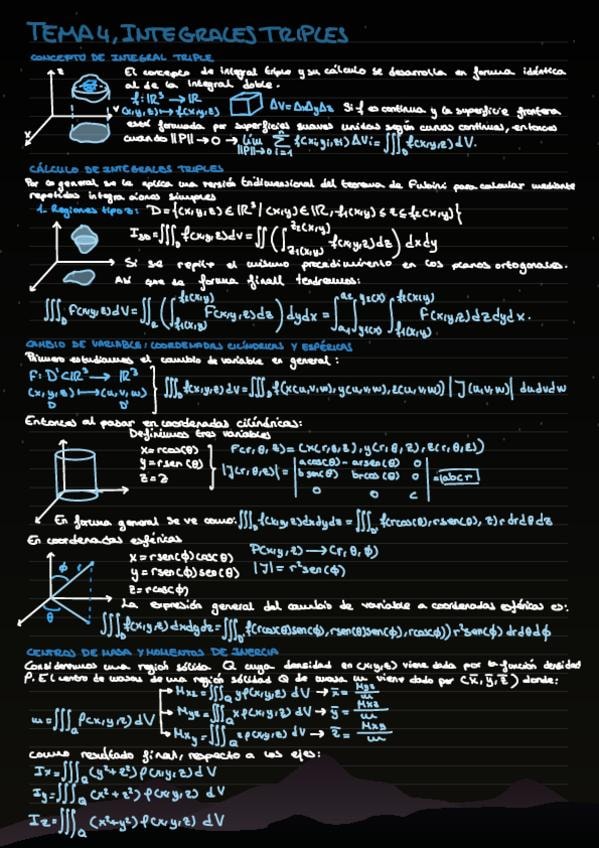 TEMA 4, INTEGRALES TRIPLES
CONCEPTO DE INTEGRAL TRIPLE
El concepto de integral triple y su cálculo se desarrolla en forma idéntica
al de la integral doble.
f: ℝ³ → ℝ
(x,y,z) ↦ f(x,y,z) ΔV = ΔxΔyΔz Si f es continua y la superficie frontera
está formada por superficies suaves unidas según curvas continuas, entonces
cuando ||P|| → 0 → lim ||P||→0 Σ i=1 n f(xi,yi,zi) ΔVi = ∭_D f(x,y,z) dV.
CÁLCULO DE INTEGRALES TRIPLES
Por lo general se le aplica una versión tridimensional del teorema de Fubini para calcular mediante
repetidas integraciones simples
1. Regiones tipo z: D = {(x,y,z) ∈ ℝ³ | (x,y) ∈ ℝ, f₁(x,y) ≤ z ≤ f₂(x,y)}
I₃D = ∭_D f(x,y,z) dV = ∬ (∫_{z₁(x,y)}^{z₂(x,y)} f(x,y,z) dz) dxdy
Si se repite el mismo procedimiento en los planos ortogonales.
Así que se forma finall tendremos:
∭_D f(x,y,z) dV = ∬_R (∫_{f₁(x,y)}^{f₂(x,y)} f(x,y,z) dz) dydx = ∫_{a₁}^{a₂} ∫_{g₁(x)}^{g₂(x)} ∫_{f₁(x,y)}^{f₂(x,y)} f(x,y,z) dz dy dx.
CAMBIO DE VARIABLE: COORDENADAS CILÍNDRICAS Y ESFÉRICAS
Primero estudiamos el cambio de variable en general:
F: D' ⊂ ℝ³ → ℝ³
(x,y,z) ↦ (u,v,w) ∭_D f(x,y,z) dV = ∭_D f(x(u,v,w), y(u,v,w), z(u,v,w)) |J(u,v,w)| du dv dw
D D'
Entonces al pasar en coordenadas cilíndricas:
Definimos tres variables
x = rcos(θ) F(r,θ,z) = (x(r,θ,z), y(r,θ,z), z(r,θ,z))
y = rsen(θ) |J(r,θ,z)| = | acos(θ) -arsen(θ) 0
z = z bsen(θ) brcos(θ) 0 | = |abcr|
0 0 c
En forma general se ve como: ∭_D f(x,y,z) dxdydz = ∭_D f(rcos(θ), rsen(θ), z) r dr dθ dz
En coordenadas esféricas
x = rsen(ϕ)cos(θ) F(x,y,z) → (r,θ,ϕ)
y = rsen(ϕ)sen(θ) |J| = r²sen(ϕ)
z = rcos(ϕ)
La expresión general del cambio de variable a coordenadas esféricas es:
∭_D f(x,y,z) dxdydz = ∭_D f(rcosθsen(ϕ), rsen(θ)sen(ϕ), rcos(ϕ)) r²sen(ϕ) dr dθ dϕ
CENTROS DE MASA Y MOMENTOS DE INERCIA
Consideremos una región sólida Q cuya densidad en (x,y,z) viene dada por la función densidad
ρ. El centro de masas de una región sólidad Q de masa m viene dado por (x̄, ȳ, z̄) donde:
m = ∭_Q ρ(x,y,z) dV
Mxz = ∭_Q yρ(x,y,z) dV → x̄ = Myz/m
Myz = ∭_Q xρ(x,y,z) dV → ȳ = Mxz/m
Mxy = ∭_Q zρ(x,y,z) dV → z̄ = Mxy/m
como resultado final, respecto a los ejes:
Ix = ∭_Q (y²+z²) ρ(x,y,z) dV
Iy = ∭_Q (x²+z²) ρ(x,y,z) dV
Iz = ∭_Q (x²+y²) ρ(x,y,z) dV